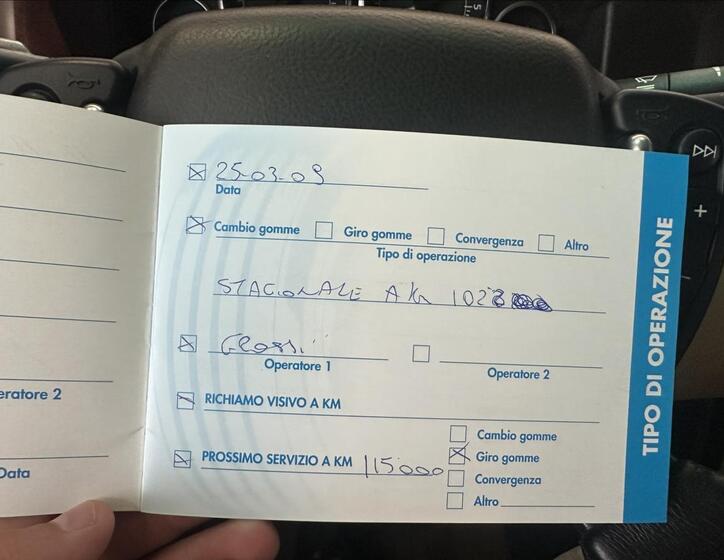 25-03-09
Data
Cambio gomme Giro gomme Convergenza Altro
Tipo di operazione
STAGIONALE A Km 1028
Operatore 1 Operatore 2
RICHIAMO VISIVO A KM
PROSSIMO SERVIZIO A KM 115000
Cambio gomme
Giro gomme
Convergenza
Altro
TIPO DI OPERAZIONE
eratore 2
Data
5